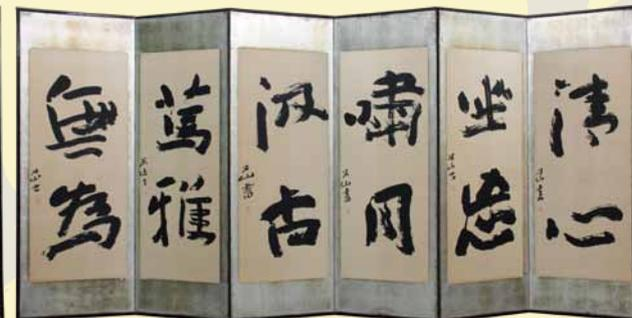 清心
坐忘
嘯月
汲古
篤雅
無為